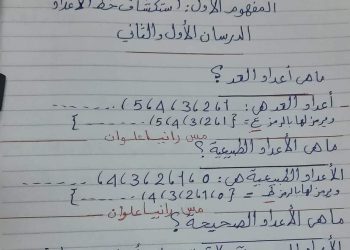 المفهوم الأول: استكشاف خط الأعداد
الدرسان الأول والثاني
ما هي أعداد العد؟
أعداد العد هي: 1، 2، 3، 4، 5، 6، .......
ويرمز لها بالرمز ع = {1، 2، 3، 4، 5، ......}
مس رانيا علوان
ما هي الأعداد الطبيعية؟
الأعداد الطبيعية هي: 0، 1، 2، 3، 4، .......
ويرمز لها بالرمز ط = {0، 1، 2، 3، 4، ......}
مس رانيا علوان
ما هي الأعداد الصحيحة؟